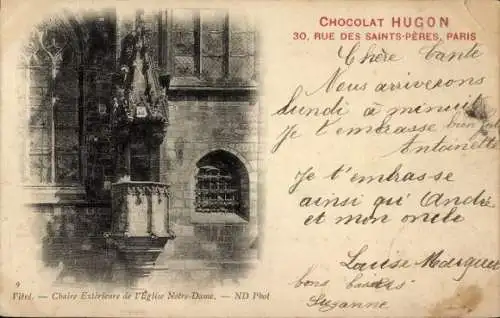 CHOCOLAT HUGON
30, RUE DES SAINTS-PÈRES, PARIS
Chère Tante
Nous arriverons
lundi à minuit
Je t'embrasse bien fort
Antoinette
Je t'embrasse
ainsi qu'André
et mon oncle
Louise
bons baisers
Suzanne
9
Vitré. — Chaire Extérieure de l'Église Notre-Dame. — ND Phot